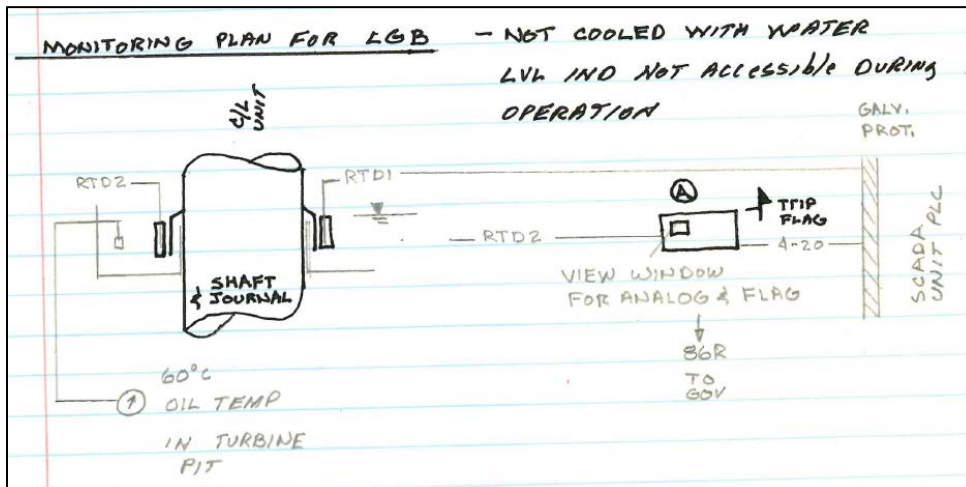 MONITORING PLAN FOR LGB - NOT COOLED WITH WATER
LVL IND NOT ACCESSIBLE DURING
OPERATION
C/L
UNIT
GALV.
PROT.
RTD2
RTD1
A
TTIP
FLAG
RTD2
4-20
SHAFT
& JOURNAL
VIEW WINDOW
FOR ANALOG & FLAG
SCADA
UNIT PLC
86R
TO
GOV
60°C
↑ OIL TEMP
IN TURBINE
PIT